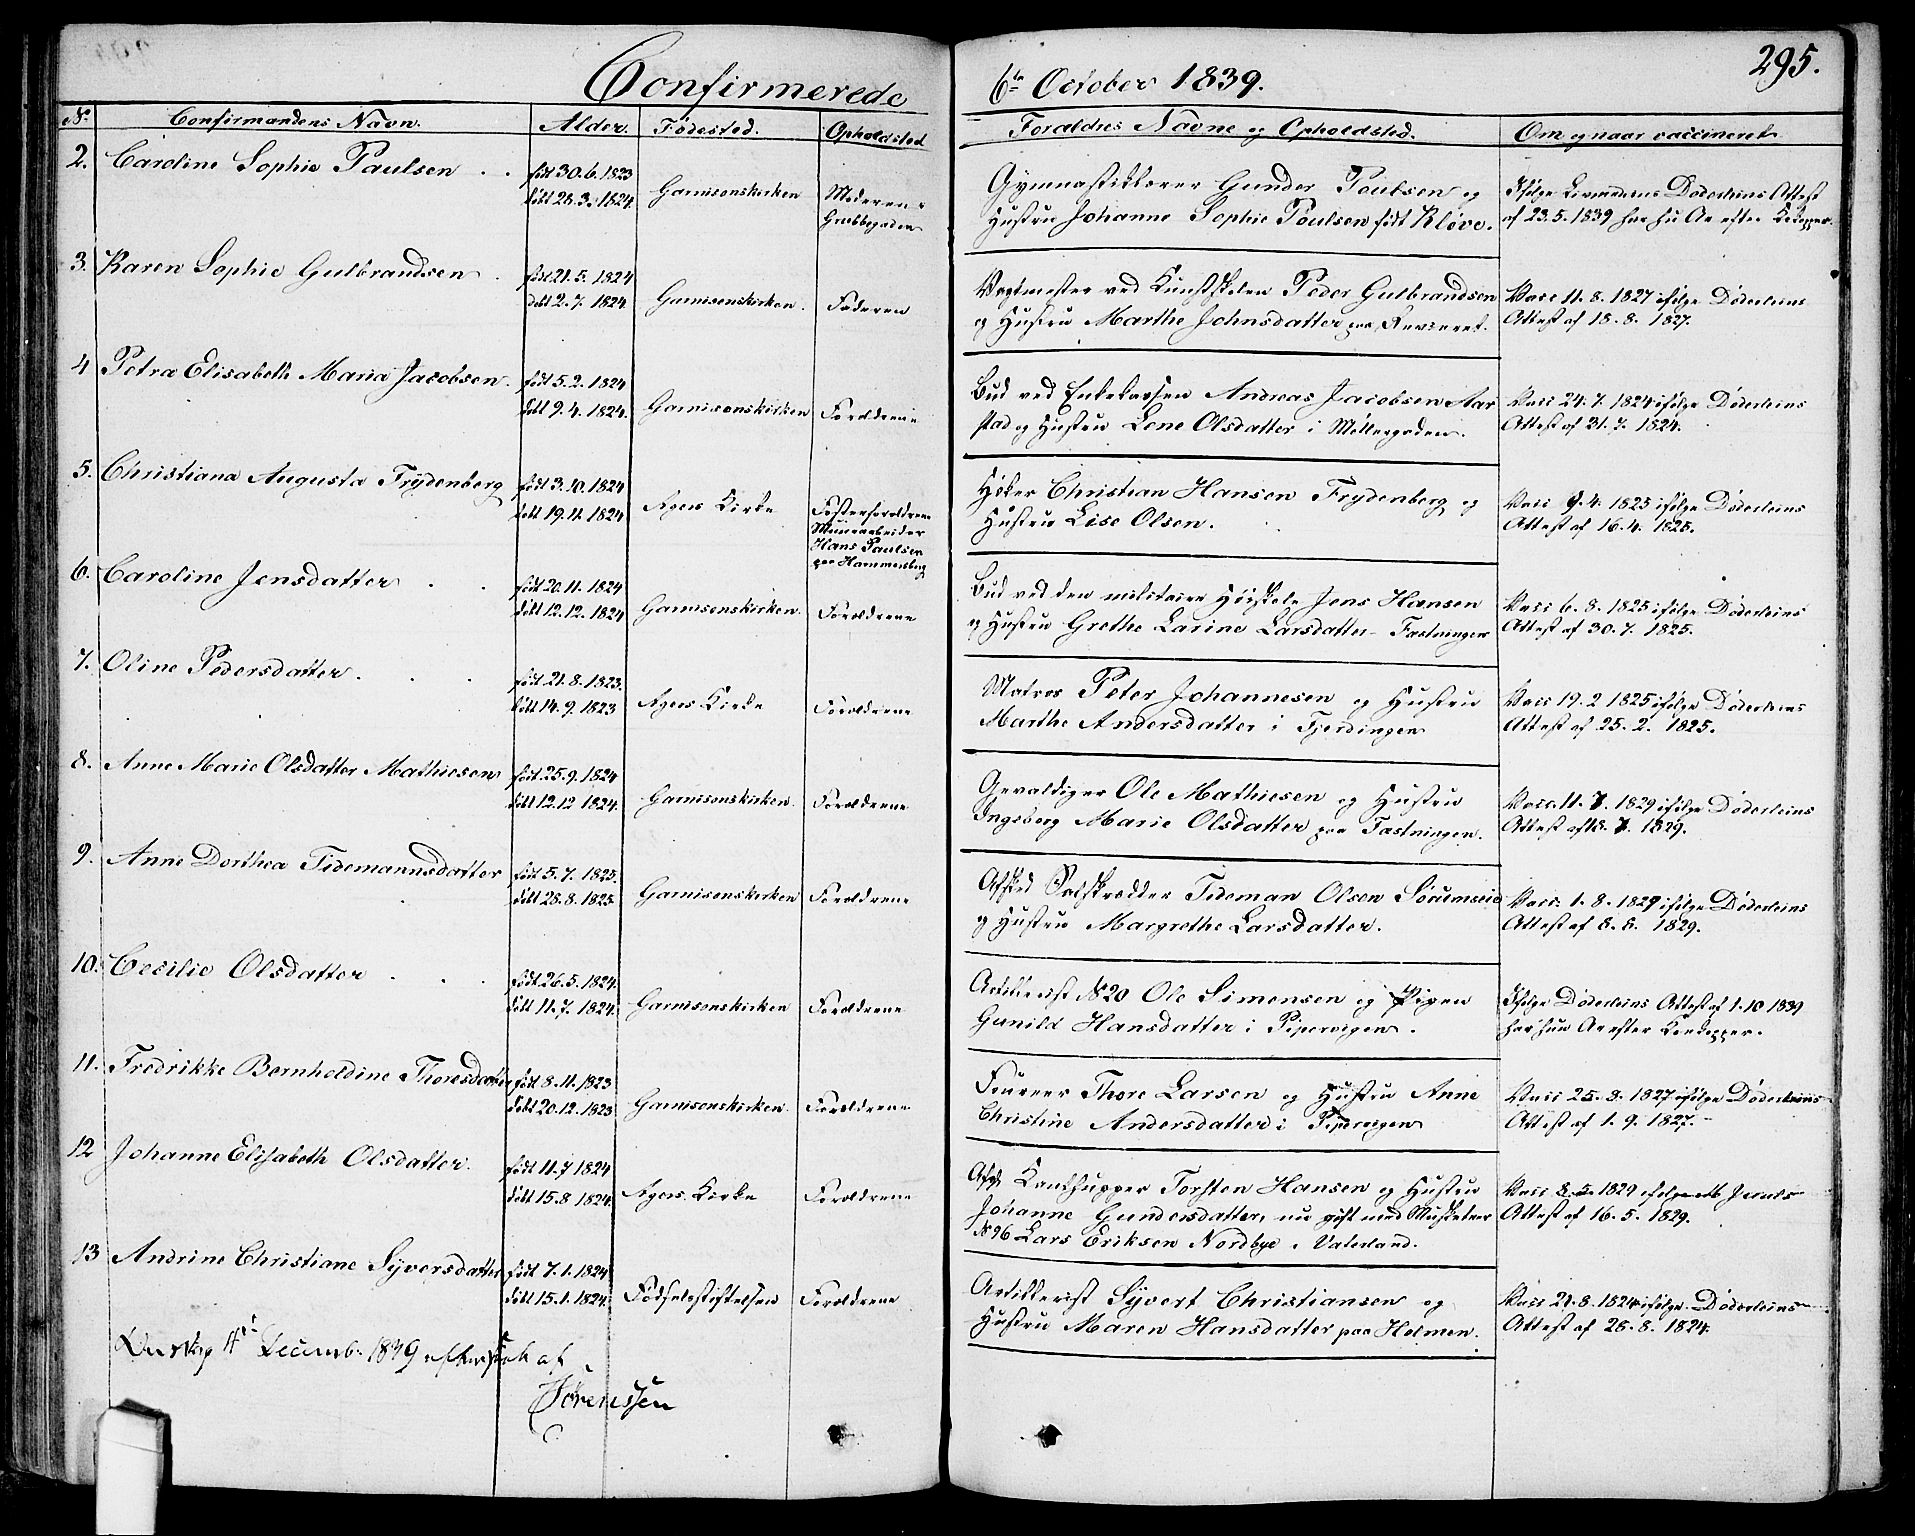 Confirmerede
6te October 1839.
295.
No.
Confirmandens Navn.
Alder.
Fødested.
Opholdsted
Forældres Navne og Opholdsted.
Om og naar vaccineret.
2. Caroline Sophie Paulsen
født 30.6.1823
døbt 28.3.1824.
Garnisonskirken
Moderen i
Grubbegaden
Gymnastiklærer Gunder Poulsen og
Hustru Johanne Sophie Poulsen født Kløve.
Ifølge Døderleins Attest
af 23.5.1839 har hun Ar efter Kopper.
3. Karen Sophie Gulbrandsen
født 21.5.1824
døbt 2.7.1824
Garnisonskirken.
Faderen
Vagtmester ved Kunstskolen Peder Gulbrandsen
og Hustru Marthe Johnsdatter paa
Vacc 11.8.1827 ifølge Døderleins
Attest af 18.8.1827.
4 Petra Elisabeth Maria Jacobsen.
født 5.2.1824
døbt 9.4.1824.
Garnisonskirken
Forældrene
Bud ved Enkekassen Andreas Jacobsen Aar
stad og Hustru Lene Olsdatter i Møllergaden.
Vacc 24.7.1824 ifølge Døderleins
Attest af 31.7.1824.
5. Christiana Augusta Frydenberg
født 3.10.1824
døbt 19.11.1824
Agers Kirke
Fosterforældrene
Muurarbeider
Hans Paulsen
paa Hammersborg
Høker Christian Hansen Frydenberg og
Hustru Lise Olsen.
Vacc 9.4.1825 ifølge Døderleins
Attest af 16.4.1825.
6. Caroline Jensdatter
født 20.11.1824
døbt 12.12.1824
Garnisonskirken.
Forældrene
Bud ved den militaire Høiskole Jens Hansen
og Hustru Grethe Larine Larsdatter Fæstningen
Vacc 6.8.1825 ifølge Døderleins
Attest af 30.7.1825.
7. Oline Pedersdatter.
født 21.8.1823.
døbt 14.9.1823
Agers Kirke
Forældrene
Matros Peter Johannesen og Hustru
Marthe Andersdatter i Fjerdingen
Vacc 19.2 1825 ifølge Døderleins
Attest af 25.2.1825.
8. Anne Marie Olsdatter Mathiesen
født 25.9.1824
døbt 12.12 1824.
Garnisonskirken.
Forældrene
Gevaldiger Ole Mathiesen og Hustru
Ingeborg Marie Olsdatter paa Fæstningen.
Vacc. 11.7.1829 ifølge Døderleins
Attest af 18.7.1829.
9. Anne Dorthea Tidemannsdatter
født 5.7.1825.
døbt 28.8.1825.
Garnisonskirken
Forældrene
Afsked Tideman Olsen
og Hustru Margrethe Larsdatter.
Vacc. 1.8.1829 ifølge Døderleins
Attest af 8.8.1829.
10. Cecilie Olsdatter
født 26.5.1824.
døbt 11.7.1824.
Garnisonskirken
Forældrene
Artillerist No 20 Ole Simensen og Pigen
Gunild Hansdatter i Pipervigen.
Ifølge Døderleins Attest af 1.10 1839
har hun Ar efter Kopper.
11. Fredrikke Bernholdine Thoresdatter
født 8.11.1823
døbt 20.12.1823
Garnisonskirken.
Forældrene
Fourer Thore Larsen og Hustru Anne
Christine Andersdatter i Pipervigen
Vacc 25.8.1827 ifølge Døderleins
Attest af 1.9.1827.
12 Johanne Elisabeth Olsdatter.
født 11.7 1824
døbt 15.8 1824.
Agers Kirke
Forældrene
Afsk. Torsten Hansen og Hustru
Johanne Gundersdatter, nu gift med Musketeer
No 96 Lars Eriksen Nordbye i Vaterland.
Vacc 8.5.1829 ifølge
Attest af 16.5.1829.
13 Andrine Christiane Syversdatter
født 7.1.1824
døbt 15.1.1824.
Fødselsstiftelsen
Forældrene
Artillerist Syvert Christiansen og
Hustru Maren Hansdatter paa Holmen.
Vacc 21.8.1824 ifølge Døderleins
Attest af 28.8.1824.
Decemb. 1839 af
Sørenssen